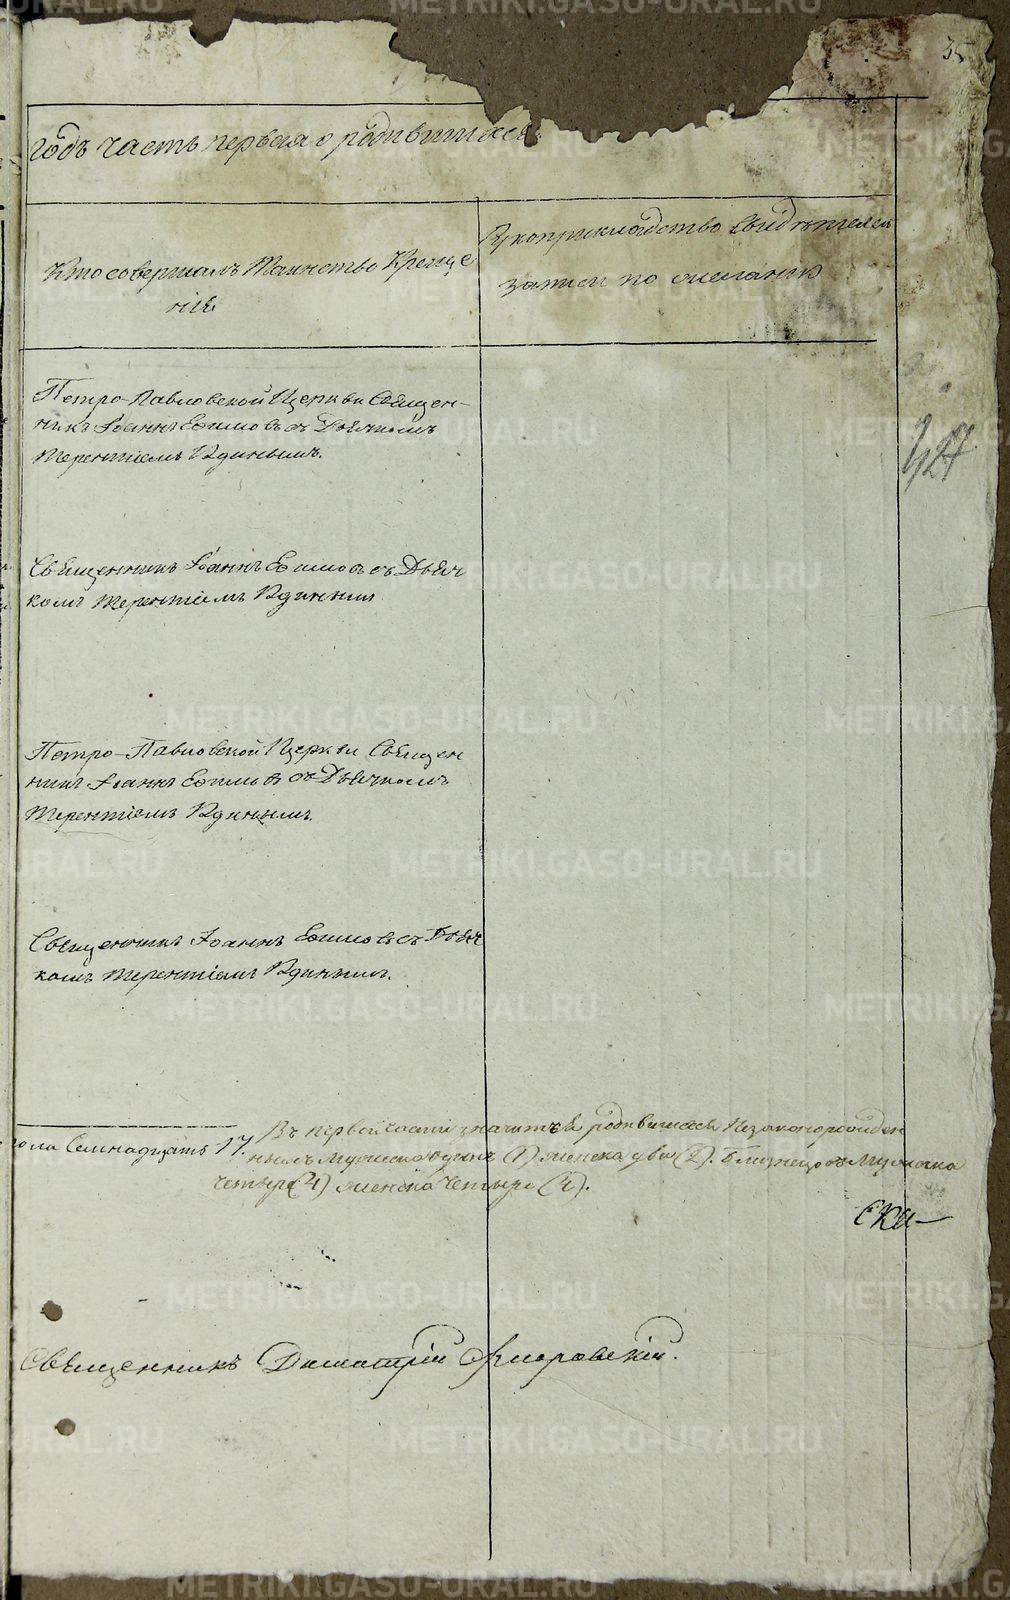 35
годъ часть первая о родившихся
Кто совершалъ Таинство Креще
ніе
Рукоприкладство свидѣтелей
записи по желанію
Петро-Павловской Церкви Священ-
никъ Іоаннъ Ефимовъ съ Дьячкомъ
Терентіемъ
Священникъ Іоаннъ Ефимовъ съ Дьяч
комъ Терентіемъ
Петро-Павловской Церкви Священ
никъ Іоаннъ Ефимовъ съ Дьячкомъ
Терентіемъ
Священникъ Іоаннъ Ефимовъ съ Дьяч
комъ Терентіемъ
пола Семнадцать 17.
Въ первой части значится родившихся Незаконорожден
ныхъ Мужеска одинъ (1) женска два (2). Близнецовъ Мужеска
четыре (4) женска Четыре (4).
Священникъ Димитрій
METRIKI.GASO-URAL.RU